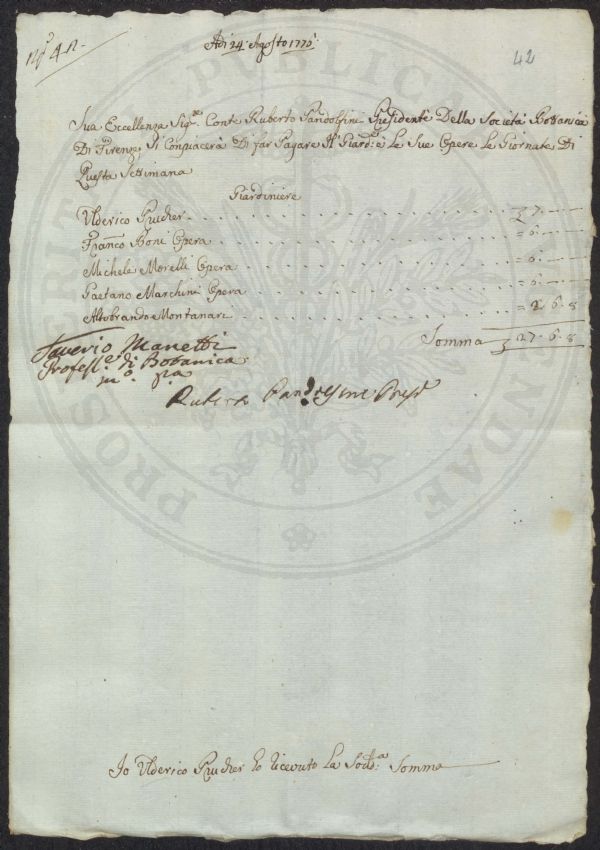 N.º 42.
Adì 24: Agosto 1775:
42
Sua Eccellenza Sig.re Conte Ruberto Pandolfini Presidente Della Società Botanica
Di Firenze, Si Conpiacerà Di far Pagare Il Giard.e e Le Sue Opere Le Giornate Di
Questa Settimana
Giardiniere
Ulderico Prucher 7. —
Franco Boni Opera = 6. —
Michele Morelli Opera = 6. —
Gaetano Marchini Opera = 6. —
Altobrando Montanari = 2. 6. 8
Somma 27. 6. 8
Saverio Manetti
Profess.e di Botanica
m.o p.a
Ruberto Pandolfini Presid.
Io Ulderico Prucher ho ricevuto La Sod.a Somma
PROSPERITATI PUBLICAE AUGENDAE